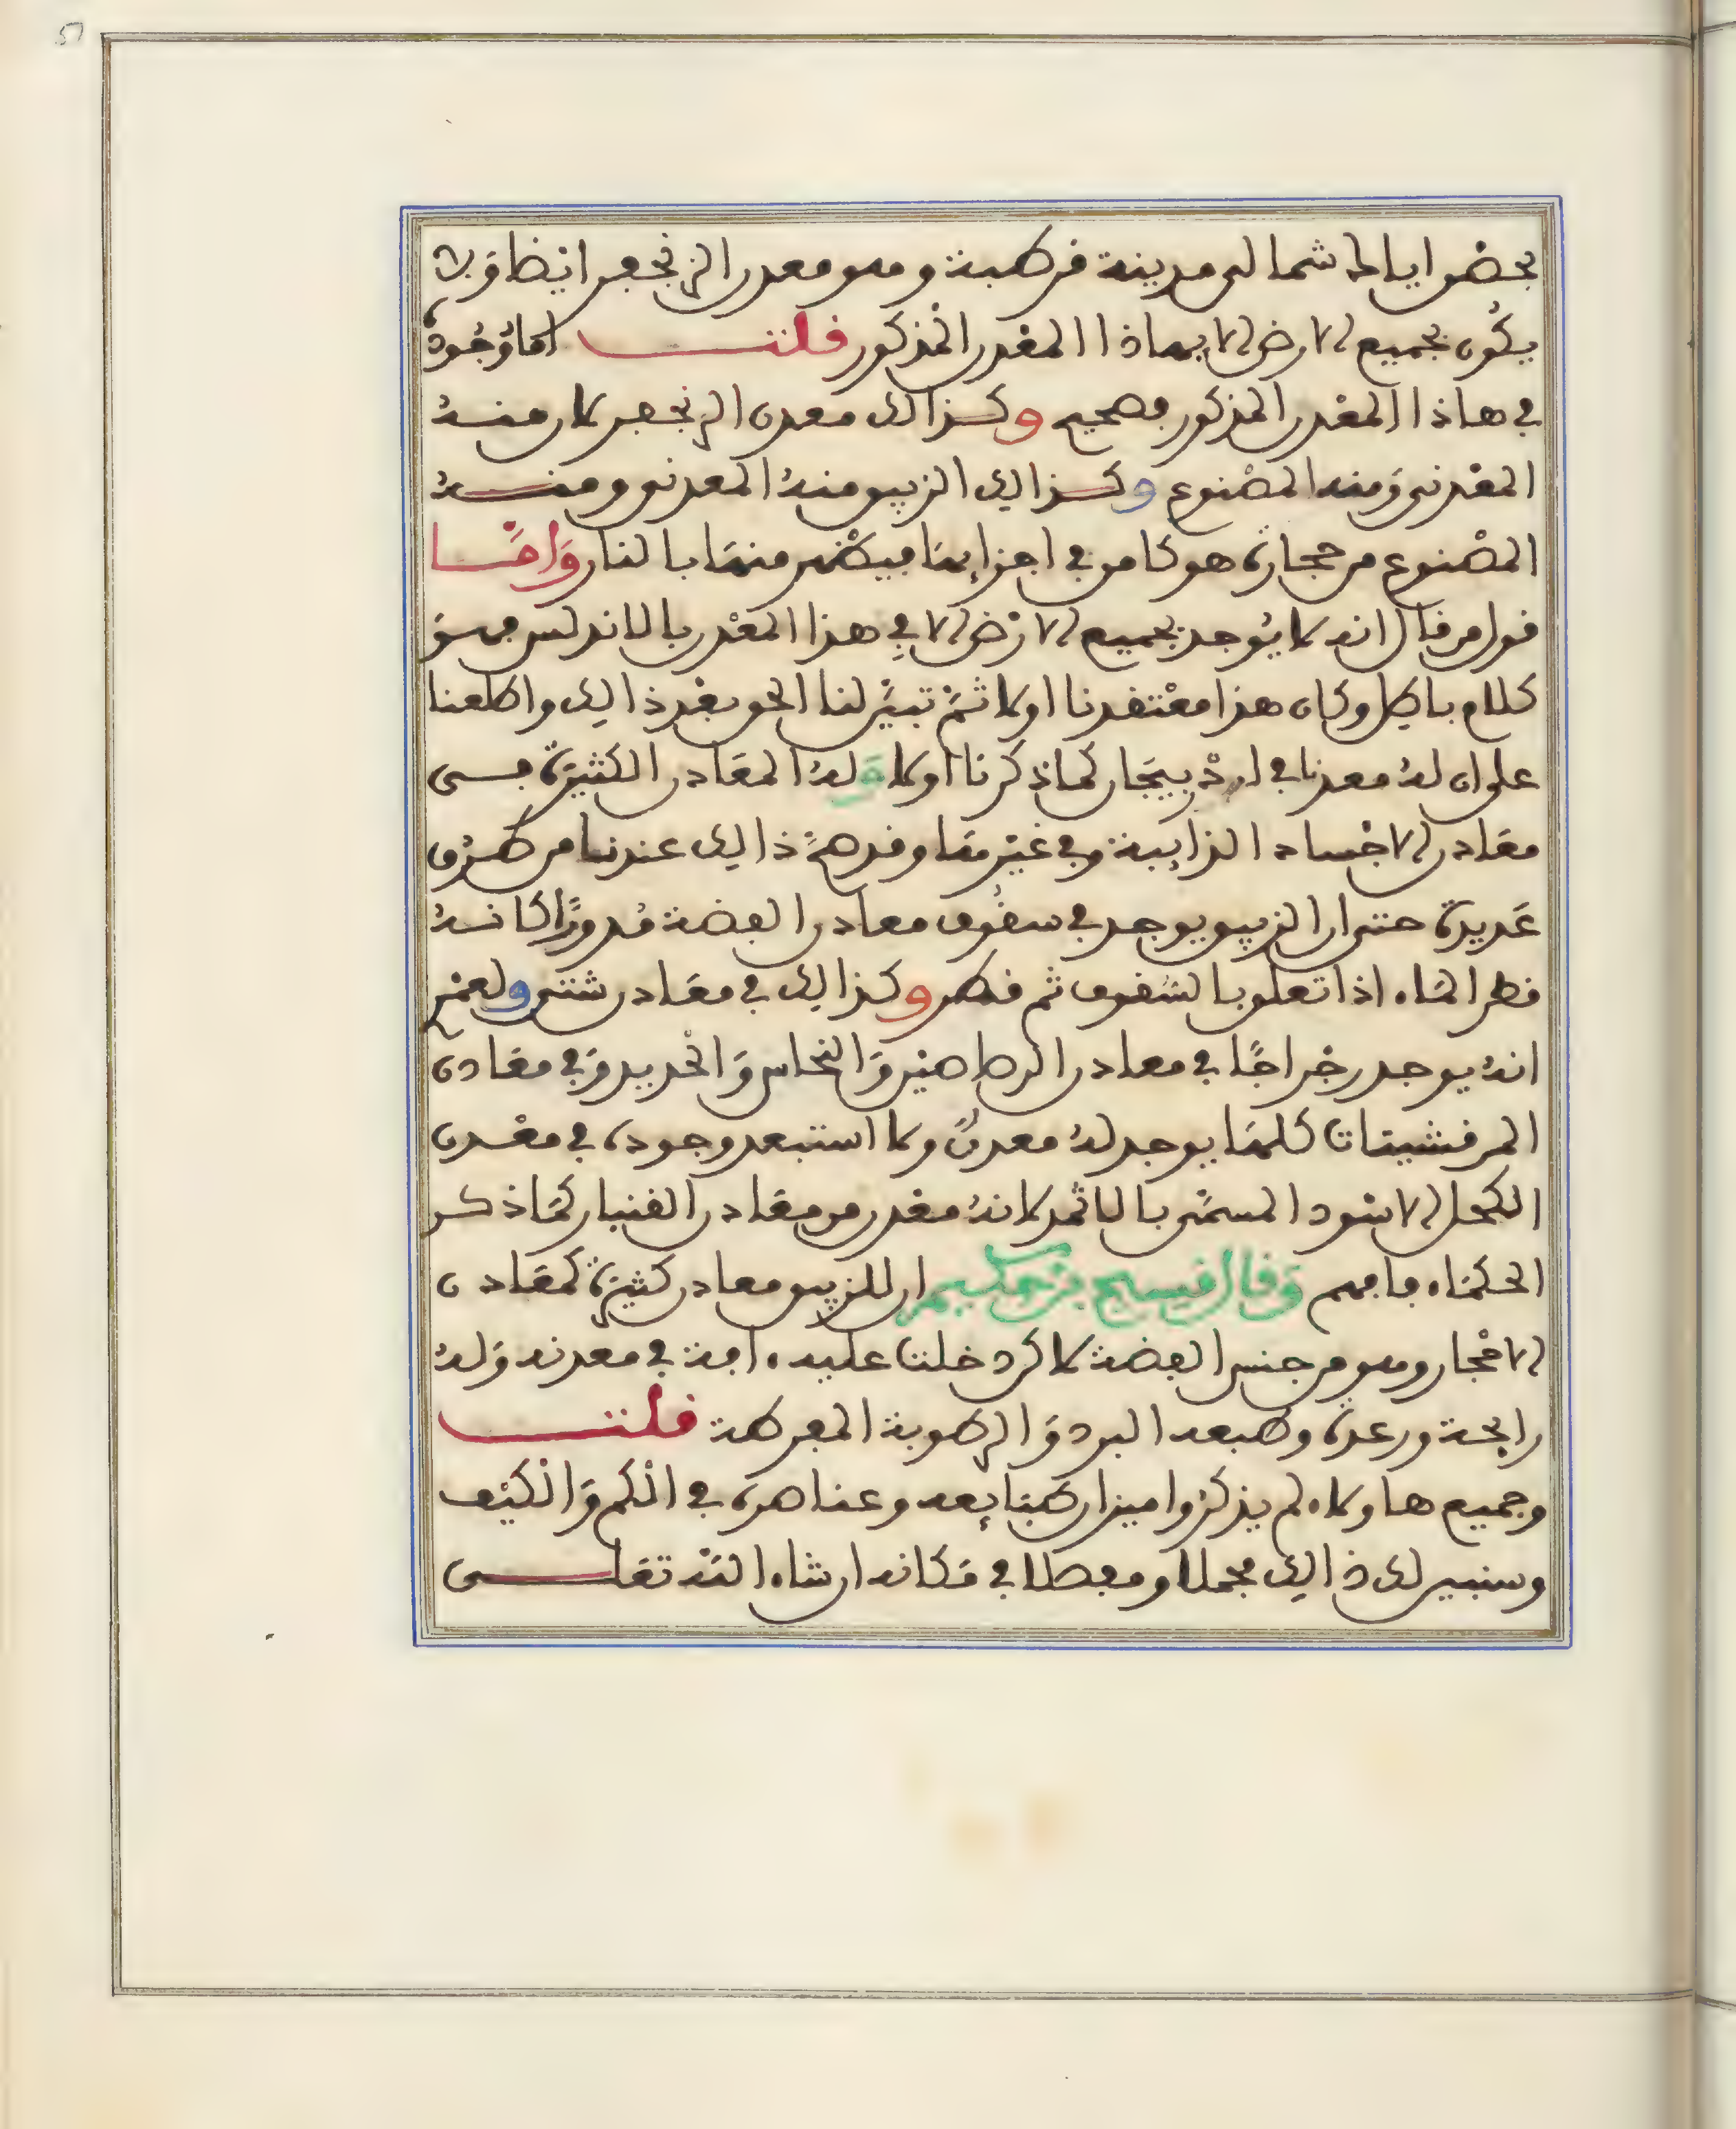 51
بحضر ايالا شمالى مدينة قرطبة وهو معدن الزنجفر ايضا وَلا
يكُون بجميع الارض الا بهاذا المعْدن المذكور قلتــــ اما وُجُودهُ
في هاذا المعْدن المذكور فصحيح وكذالك معدن الزنجفر لان منــهُ
المعْدني وَمنه المصْنوع وكذالك الزيبق منهُ المعدني ومنــهُ
المصْنوع من حجارة هو كامن في اجزايهَا فيظهر منهَا بالنار وَامّــا
قول من قال انه لا يُوجد بجميع الارْض الا في هذا المعْدن بالاندلس فهو
كلام باطل وكان هذا معْتقدنا اولا ثمّ تبيّن لنا الحق بعْد ذالك واطلعنا
على ان لهُ معدنا في ارض بيجَار كما ذكرنا اولا وَلهُ المعَادن الكثيرة فــى
معَادن الاجْساد الذايبة وفي غيْرهَا وقد صحّ ذالك عندنا من طــرُق
عَديدة حتى ان الزيبق يوجد في سقُوف معادن الفضة مُدورًا كانــهُ
قطر المَاء اذا تعلق بالسُقوف ثم قطر وكذالك في معَادن شتى ولعمْري
انهُ يوجد رجْراجًا في معادن الرصاصيْن وَالنحاس وَالحْديد وَفي معَادن
المرقشيثات كلهَا يوجد لهُ معدنٌ ولا استبعد وجوده في معْــدن
الكحل الاسْود المسمّى بالاثمد لانهُ معْدن من معَادن القنبار كمَا ذكــر
الحكمَاء فافهم وَقال قيسبح بن حكيم ان للزيبق معادن كثيرة كمَعَادن
الاحْجار وهو من جنس الفضة لاكن دخلت عليه ءافة في معدنه وَلهُ
رايحة ورعدة وطبعه البرد وَالرطوبة المفرطة قلتــــ
وجميع هاولاء لم يذكرُوا ميزان طبَايعه وعناصرة في الكم وَالكيْف
وسنبين لك ذالك مجملا ومفصلا في مَكانه ان شاء اللهْ تعَالــى